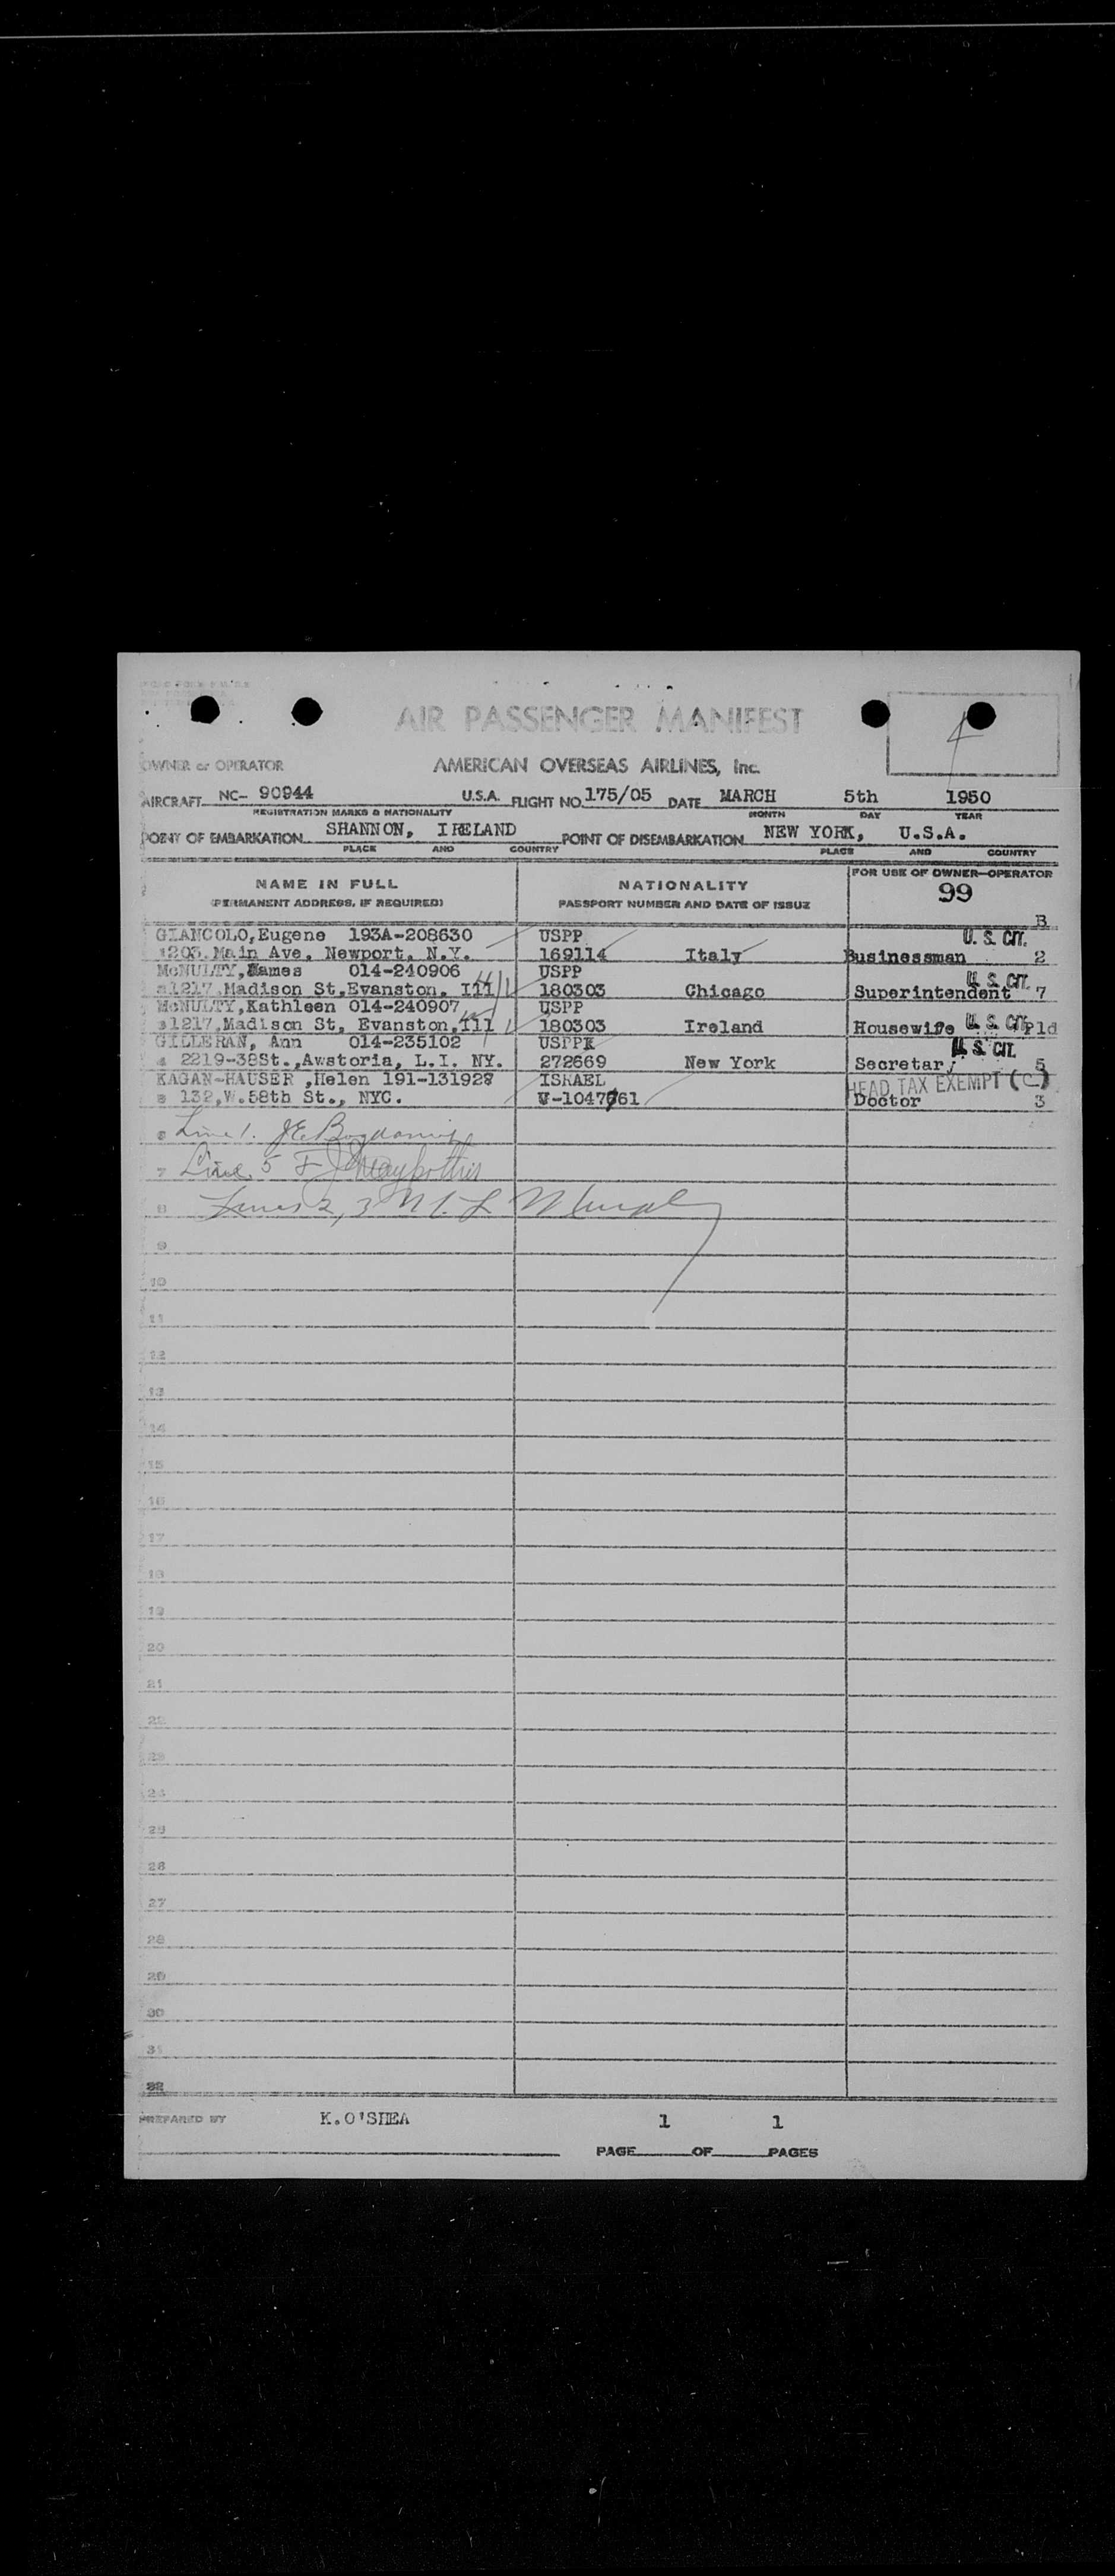 AIR PASSENGER MANIFEST
4
OWNER or OPERATOR AMERICAN OVERSEAS AIRLINES, Inc.
AIRCRAFT NC- 90944 U.S.A. FLIGHT NO. 175/05 DATE MARCH 5th 1950
REGISTRATION MARKS & NATIONALITY MONTH DAY YEAR
POINT OF EMBARKATION SHANNON, IRELAND POINT OF DISEMBARKATION NEW YORK, U.S.A.
PLACE AND COUNTRY PLACE AND COUNTRY
NAME IN FULL NATIONALITY FOR USE OF OWNER-OPERATOR
(PERMANENT ADDRESS, IF REQUIRED) PASSPORT NUMBER AND DATE OF ISSUE 99
B
GIANCOLO,Eugene 193A-208630 USPP U. S. CIT.
1203 Main Ave. Newport, N.Y. 169114 Italy Businessman 2
McNULTY,James 014-240906 USPP U. S. CIT.
1217 Madison St,Evanston, Ill 180303 Chicago Superintendent 7
McNULTY,Kathleen 014-240907 USPP
1217,Madison St, Evanston,Ill 180303 Ireland Housewife U. S. CIT. Pld
GILLERAN, Ann 014-235102 USPP U. S. CIT.
4 2219-38St.,Awstoria, L.I. NY. 272669 New York Secretary 5
KAGAN-HAUSER ,Helen 191-131928 ISRAEL HEAD TAX EXEMPT (C)
132,W.58th St., NYC. Doctor 3
6 Line 1. J E
7 Line 5 F J
8 Lines 2, 3 Murphy
9
10
11
12
13
14
15
16
17
18
19
20
21
22
23
24
25
26
27
28
29
30
31
32
PREPARED BY K.O'SHEA 1 1
PAGE OF PAGES